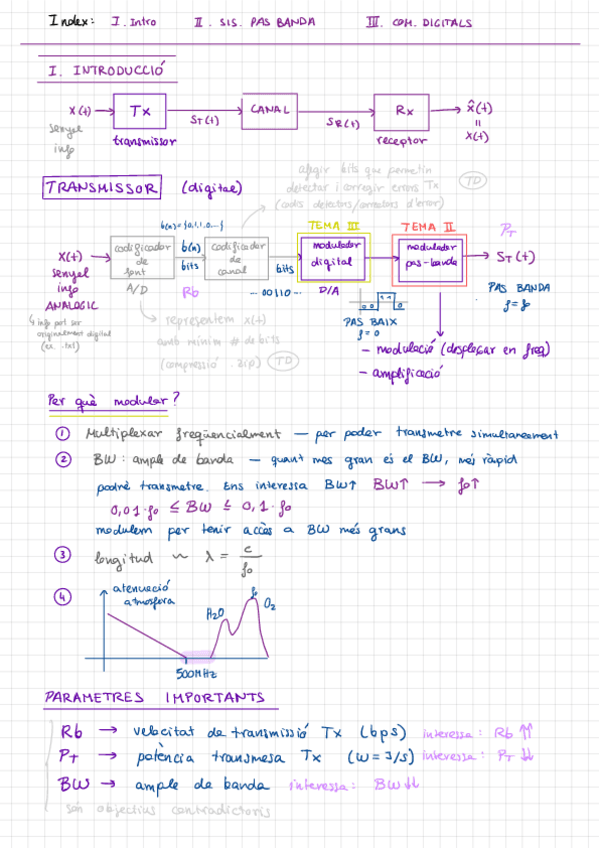 Index: I. Intro II. SIS. PAS BANDA III. COM. DIGITALS
I. INTRODUCCIÓ
x(t) → Tx → CANAL → Rx → x̂(t)
senyal info
transmissor
S_T(t)
S_R(t)
receptor
=
x(t)
afegir bits que permetin
detectar i corregir errors Tx
(codis detectors/correctors d'error)
TD
TRANSMISSOR (digital)
b(n) = {0,1,1,0,...}
TEMA III
TEMA II
P_T
x(t) →
senyal
info
ANALÒGIC
codificador
de
font
b(n)
bits
codificador
de
canal
bits
modulador
digital
modulador
pas-banda
→ S_T(t)
A/D
Rb
... 00110 ...
D/A
PAS BANDA
f = f₀
↳ info pot ser
originalment digital
(ex. .txt)
→ representem x(t)
amb mínim # de bits
(compressió .zip) TD
0 0 1 1 0
PAS BAIX
f = 0
- modulació (desplaçar en freq)
- amplificació
Per què modular?
① Multiplexar freqüencialment — per poder transmetre simultaneament
② BW: ample de banda — quant mes gran és el BW, més ràpid
podré transmetre. Ens interessa BW↑ BW↑ → f₀↑
0,01·f₀ ≤ BW ≤ 0,1·f₀
modulem per tenir accès a BW més grans
③ longitud ~ λ = c/f₀
④ atenuació
atmosfera
H₂O
O₂
500MHz
PARAMETRES IMPORTANTS
Rb → velocitat de transmissió Tx (bps) interessa: Rb ↑↑
P_T → potència transmesa Tx (W = J/s) interessa: P_T ↓↓
BW → ample de banda interessa: BW↓↓
són objectius contradictoris